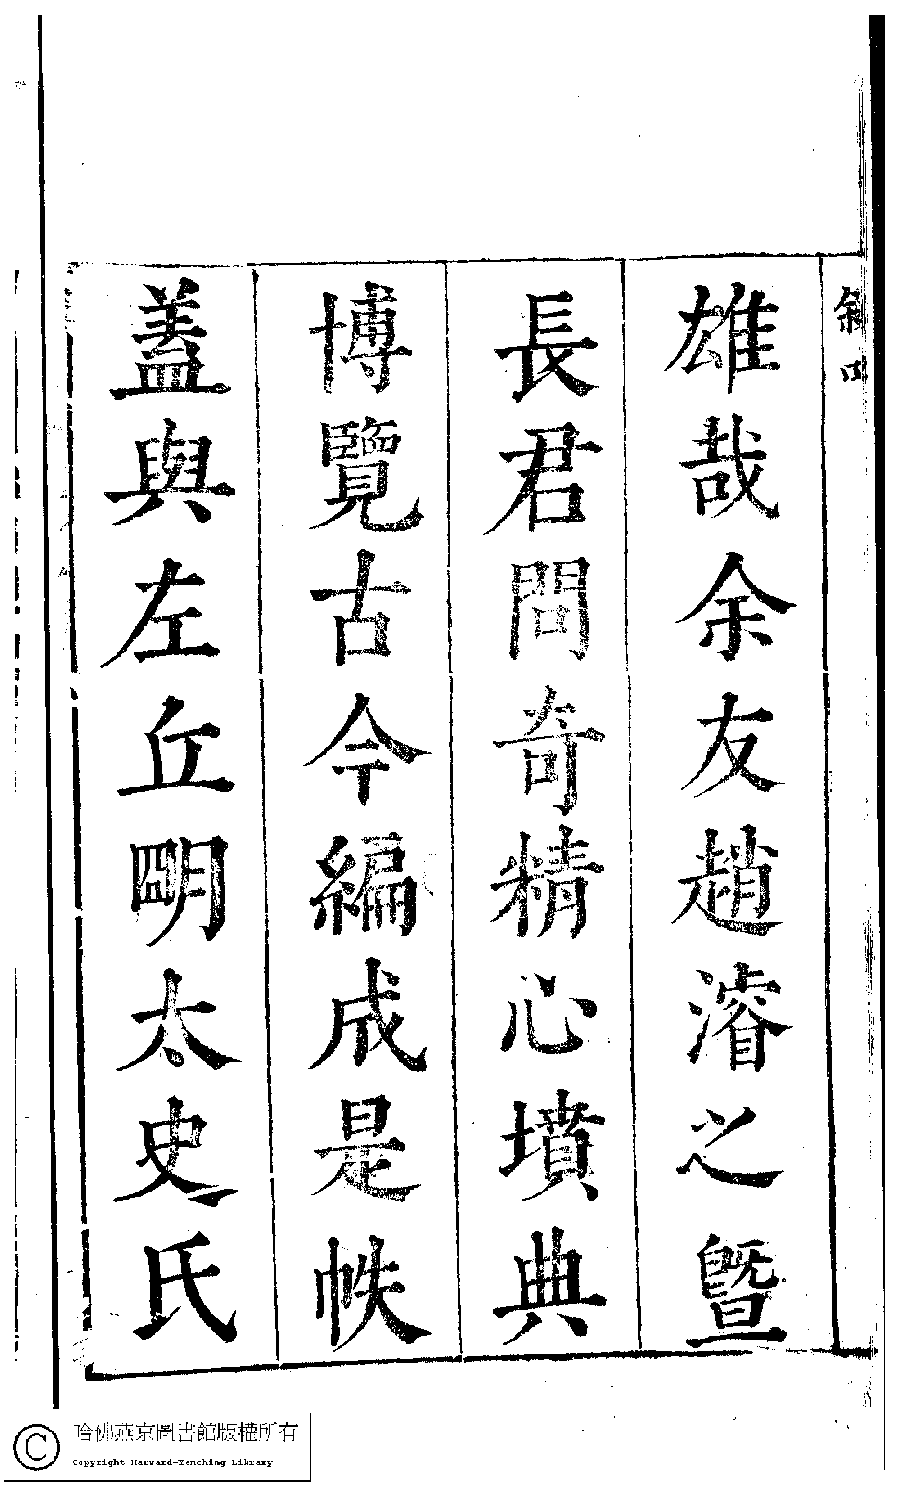 敘四
雄哉余友趙濬之曁
長君問奇精心墳典
博覽古今編成是帙
蓋與左丘明太史氏
哈佛燕京圖書館版權所有
Copyright Harvard-Yenching Library